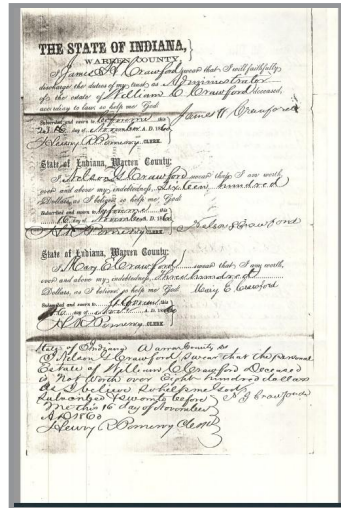 THE STATE OF INDIANA,
WARREN COUNTY,
I James W Crawford swear that I will faithfully
discharge the duties of my trust as Administrator
of the estate of William C Crawford deceased,
according to law: so help me God.
James W Crawford
Subscribed and sworn to before me this
16 day of November A. D. 1860
Henry R Pomeroy CLERK.
State of Indiana, Warren County:
I Nelson G Crawford swear that I am worth
over and above my indebtedness, sixteen hundred
Dollars, as I believe so help me God.
Subscribed and sworn to before me this
16 day of November A. D. 1860
H R Pomeroy CLERK Nelson G Crawford
State of Indiana, Warren County:
I Mary E Crawford swear that I am worth,
over and above my indebtedness, Three hundred
Dollars, as I believe so help me God.
Mary E Crawford
Subscribed and sworn to before me this
16 day of Nov A. D. 1860
H R Pomeroy CLERK
State of Indiana Warren County ss
I Nelson G Crawford swear that the personal
Estate of William C Crawford Deceased
is Not Worth over Eight hundred dollars
as I believe so help me God
Subscribed & sworn to before N G Crawford
Me this 16 day of November
AD 1860
Henry R Pomeroy Clerk